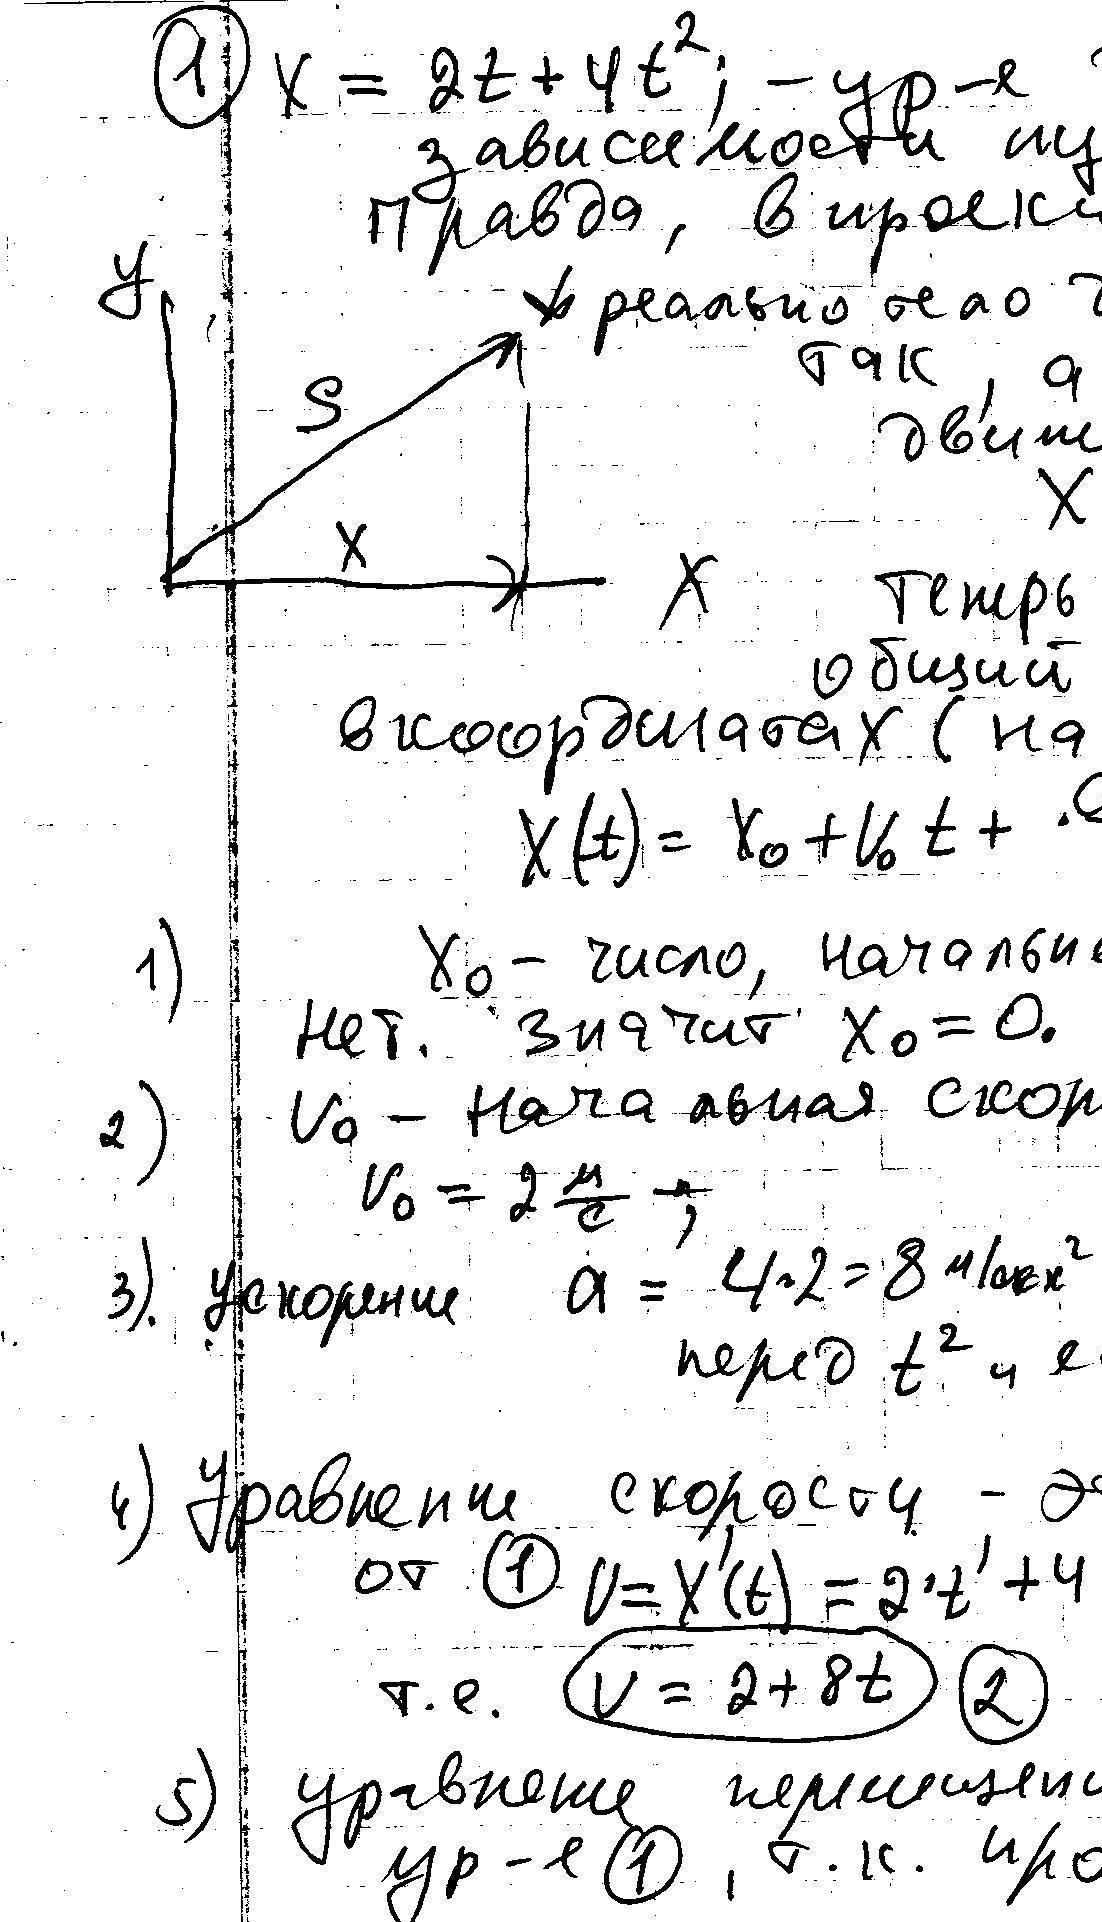 ① X = 2t + 4t²; – ур-е
зависимости пу
Правда, в проек
y
реально тело
S
так, а
движ
X
X
X
Теперь
общий
в координатах (на
X(t) = X₀ + V₀ t +
1) X₀ – число, начальн
нет. Значит X₀ = 0.
2) V₀ – начальная скор
V₀ = 2 м/с ;
3). ускорение a = 4·2 = 8 м/сек²
перед t² и
4) Уравнение скорости –
от ① V = X'(t) = 2·t' + 4
т.е. V = 2 + 8t ②
5) уравнение перемещен
ур-е ①, т.к. про